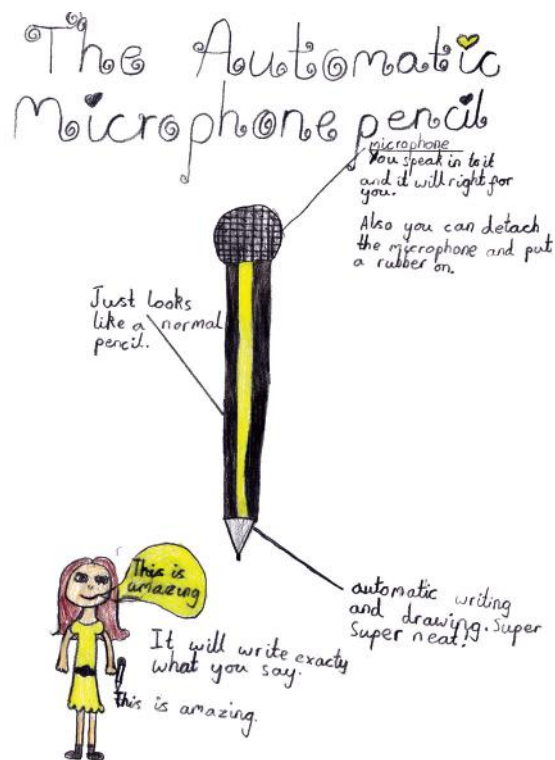 The Automatic
Microphone pencil
microphone
You speak in to it
and it will right for
you.
Also you can detach
the microphone and put
a rubber on.
Just looks
like a normal
pencil.
This is
amazing
automatic writing
and drawing. Super
Super neat!
It will write exactly
what you say.
This is amazing.